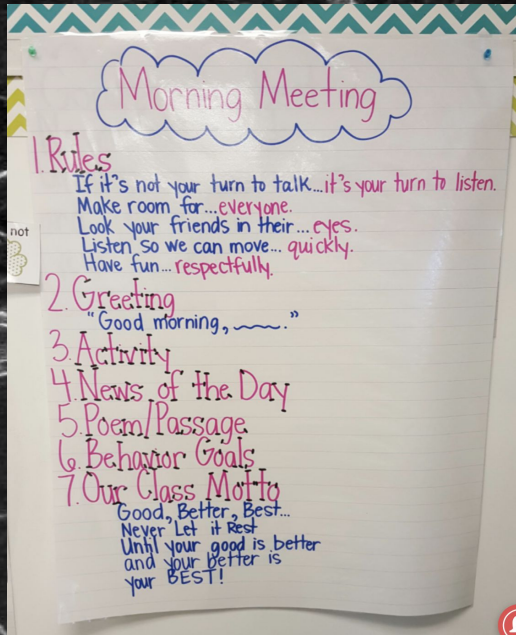 Morning Meeting
1. Rules
If it's not your turn to talk...it's your turn to listen.
Make room for...everyone.
Look your friends in their...eyes.
not
Listen so we can move... quickly.
Have fun... respectfully.
2. Greeting
"Good morning, ______."
3. Activity
4. News of the Day
5. Poem/Passage
6. Behavior Goals
7. Our Class Motto
Good, Better, Best...
Never Let it Rest
Until your good is better
and your better is
your BEST!